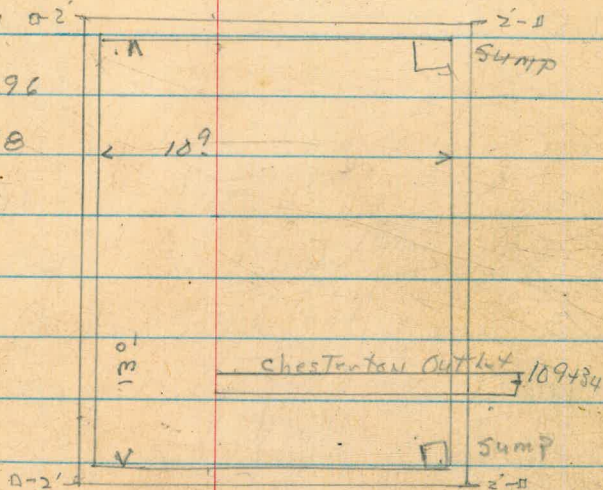 0-2' 2'-0
Sump
96
8
10⁹
13⁰
Chesterton Outlet 109+34
Sump
0-2' 2'-0